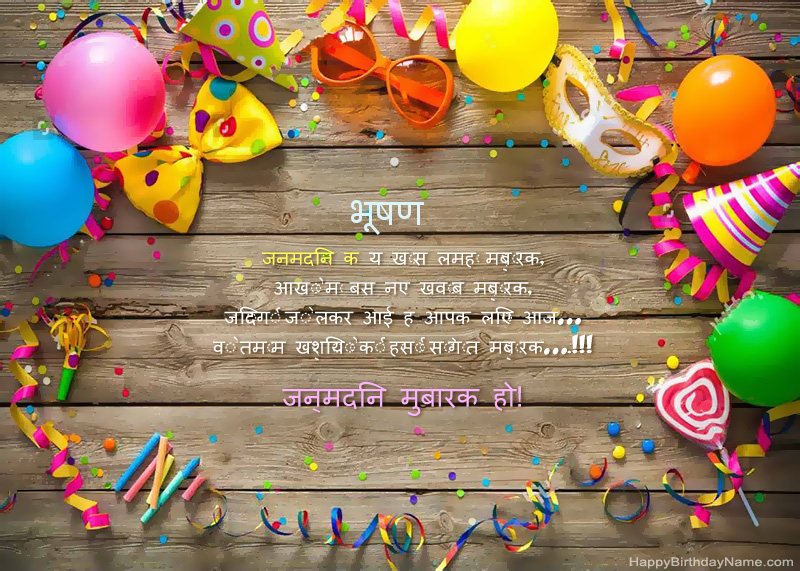 भूषण
जन्मदिन के ये ख़ास लम्हें मुबारक,
आँखों में बसे नए ख्वाब मुबारक,
जिंदगी जो लेकर आई है आपके लिए आज...
वो तमाम खुशियों की हंसीं सौगात मुबारक...!!!
जन्मदिन मुबारक हो!
HappyBirthdayName.com